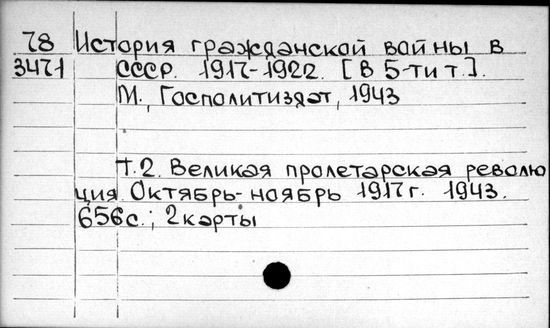 78 История гражданской войны в
3471 СССР. 1917-1922. [В 5-ти т.].
М., Госполитиздат, 1943
Т.2. Великая пролетарская револю
ция. Октябрь-ноябрь 1917г. 1943.
656с.; 2 карты